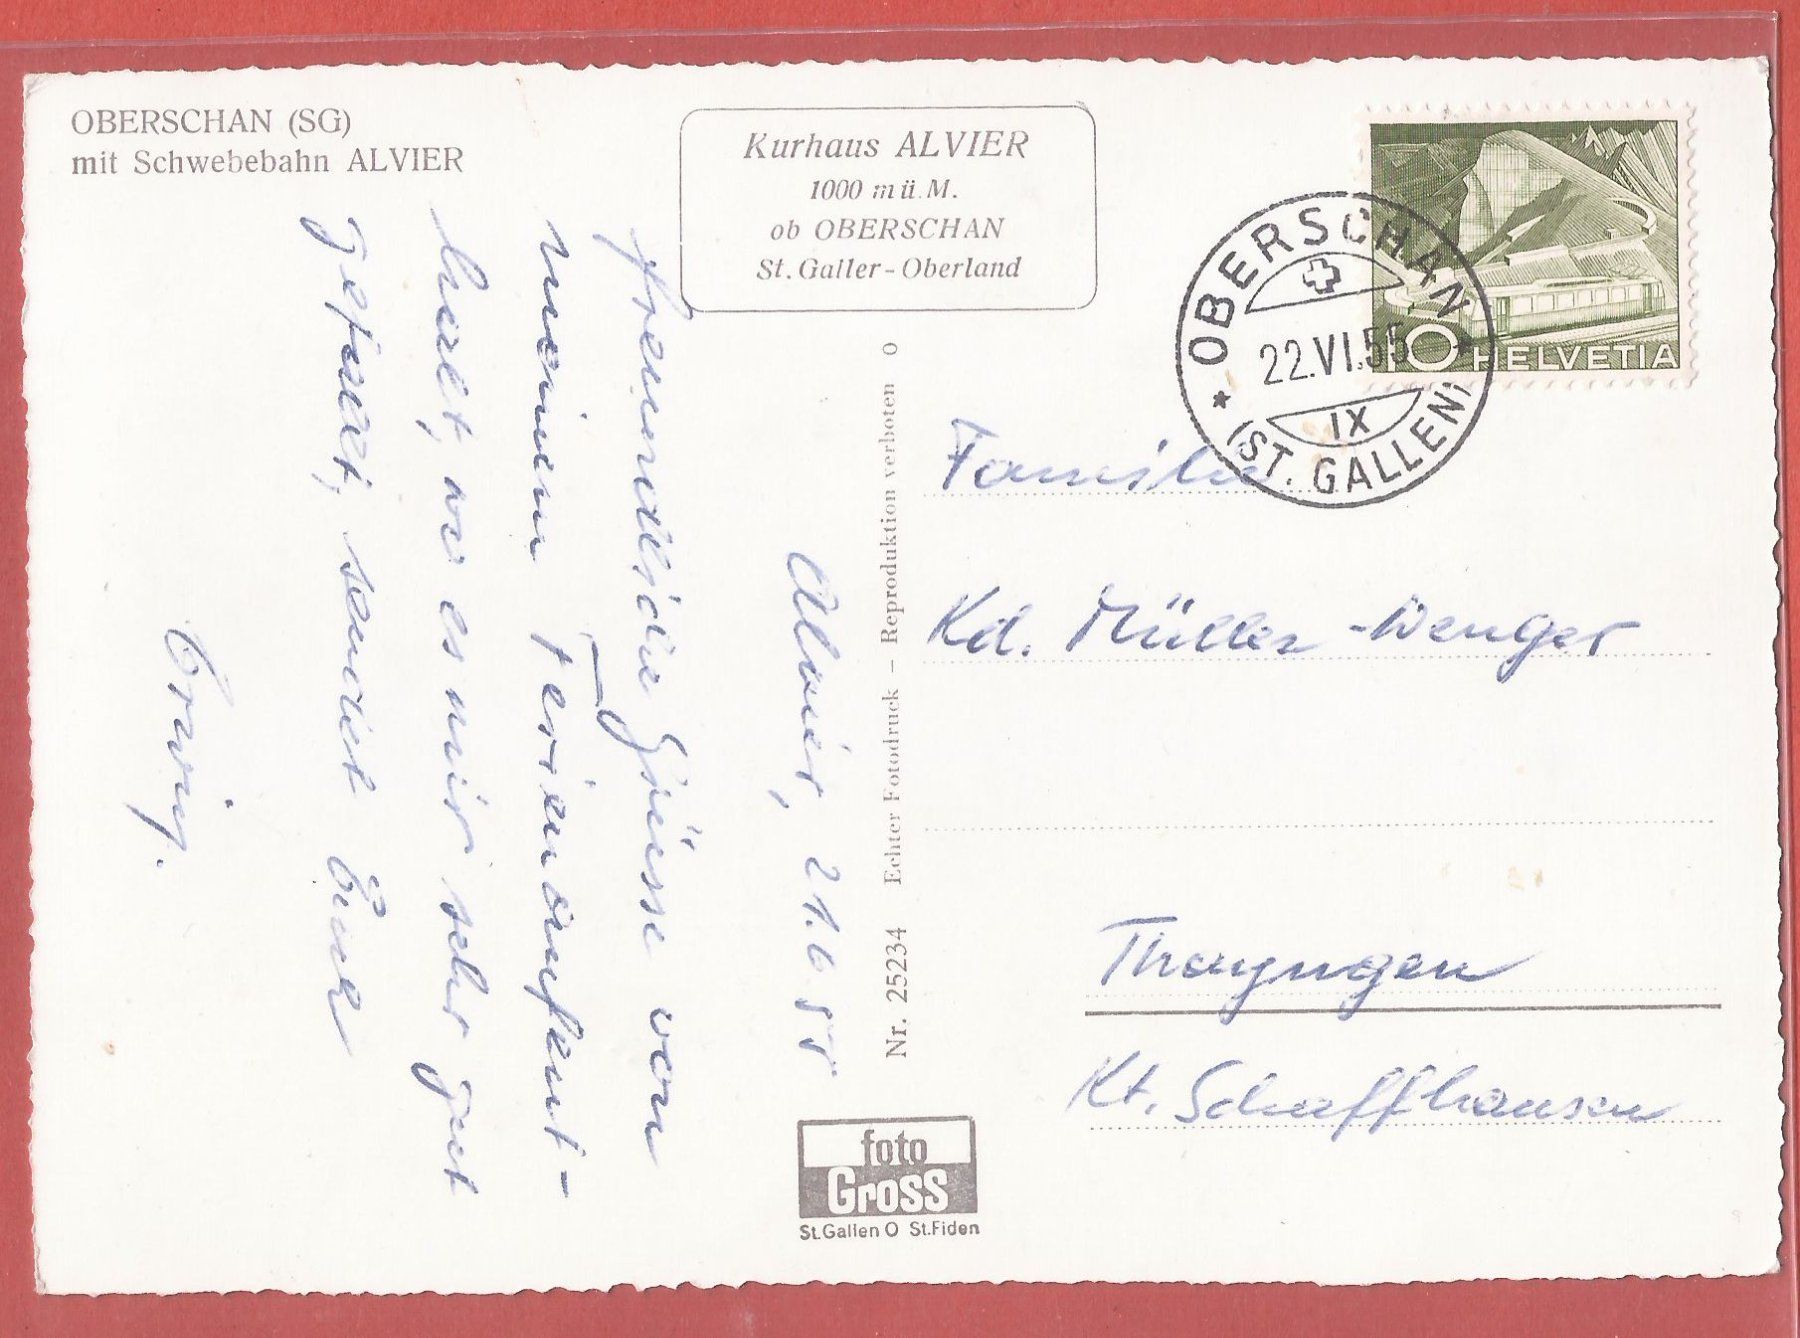 OBERSCHAN (SG)
mit Schwebebahn ALVIER
Kurhaus ALVIER
1000 m ü. M.
ob OBERSCHAN
St. Galler-Oberland
OBERSCHAN
22.VI.55
IX
(ST. GALLEN)
10 HELVETIA
Alvier, 21.6.55
freundliche Grüsse von
meinem Ferienaufent-
halt, wo es mir sehr gut
gefällt, sendet Euch
Familie
Kd. Müller-Wenger
Thayngen
Kt. Schaffhausen
Nr. 25234 Echter Fotodruck – Reproduktion verboten O
foto
Gross
St.Gallen O St.Fiden